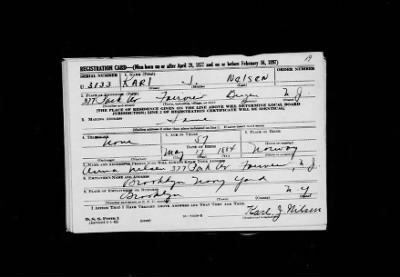 19
REGISTRATION CARD—(Men born on or after April 28, 1877 and on or before February 16, 1897)
SERIAL NUMBER 1. NAME (Print) ORDER NUMBER
U 3133 KARL J. NELSEN
(First) (Middle) (Last)
2. PLACE OF RESIDENCE (Print)
377 Park Av Bergen N J.
[THE PLACE OF RESIDENCE GIVEN ON THE LINE ABOVE WILL DETERMINE LOCAL BOARD
JURISDICTION; LINE 2 OF REGISTRATION CERTIFICATE WILL BE IDENTICAL]
3. MAILING ADDRESS
Same
4. TELEPHONE 5. AGE IN YEARS 6. PLACE OF BIRTH
57
None DATE OF BIRTH
May 17 1884 Norway
7. NAME AND ADDRESS OF PERSON WHO WILL ALWAYS KNOW YOUR ADDRESS
Anna Nelsen 377 Park Av N J
8. EMPLOYER'S NAME AND ADDRESS
Brooklyn Navy Yard
9. PLACE OF EMPLOYMENT OR BUSINESS
Brooklyn N Y
I AFFIRM THAT I HAVE VERIFIED ABOVE ANSWERS AND THAT THEY ARE TRUE.
D. S. S. Form 1
Karl J. Nilsen